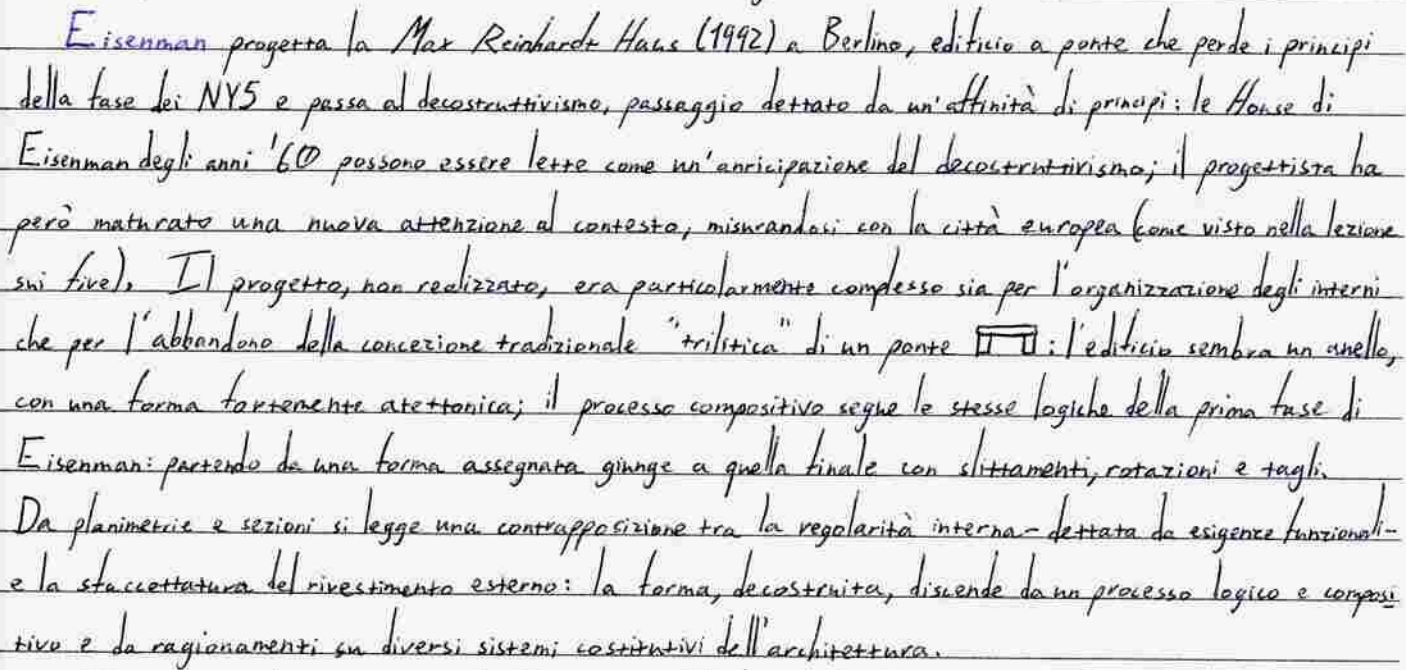 Eisenman progetta la Max Reinhardt Haus (1992) a Berlino, edificio a ponte che perde i principi
della fase dei NY5 e passa al decostruttivismo, passaggio dettato da un'affinità di principi: le House di
Eisenman degli anni '60 possono essere lette come un'anticipazione del decostruttivismo; il progettista ha
però maturato una nuova attenzione al contesto, misurandosi con la città europea (come visto nella lezione
sui five). Il progetto, non realizzato, era particolarmente complesso sia per l'organizzazione degli interni
che per l'abbandono della concezione tradizionale "trilitica" di un ponte : l'edificio sembra un anello,
con una forma fortemente atettonica; il processo compositivo segue le stesse logiche della prima fase di
Eisenman: partendo da una forma assegnata giunge a quella finale con slittamenti, rotazioni e tagli.
Da planimetrie e sezioni si legge una contrapposizione tra la regolarità interna - dettata da esigenze funzionali -
e la sfaccettatura del rivestimento esterno: la forma, decostruita, discende da un processo logico e composi
tivo e da ragionamenti su diversi sistemi costitutivi dell'architettura.